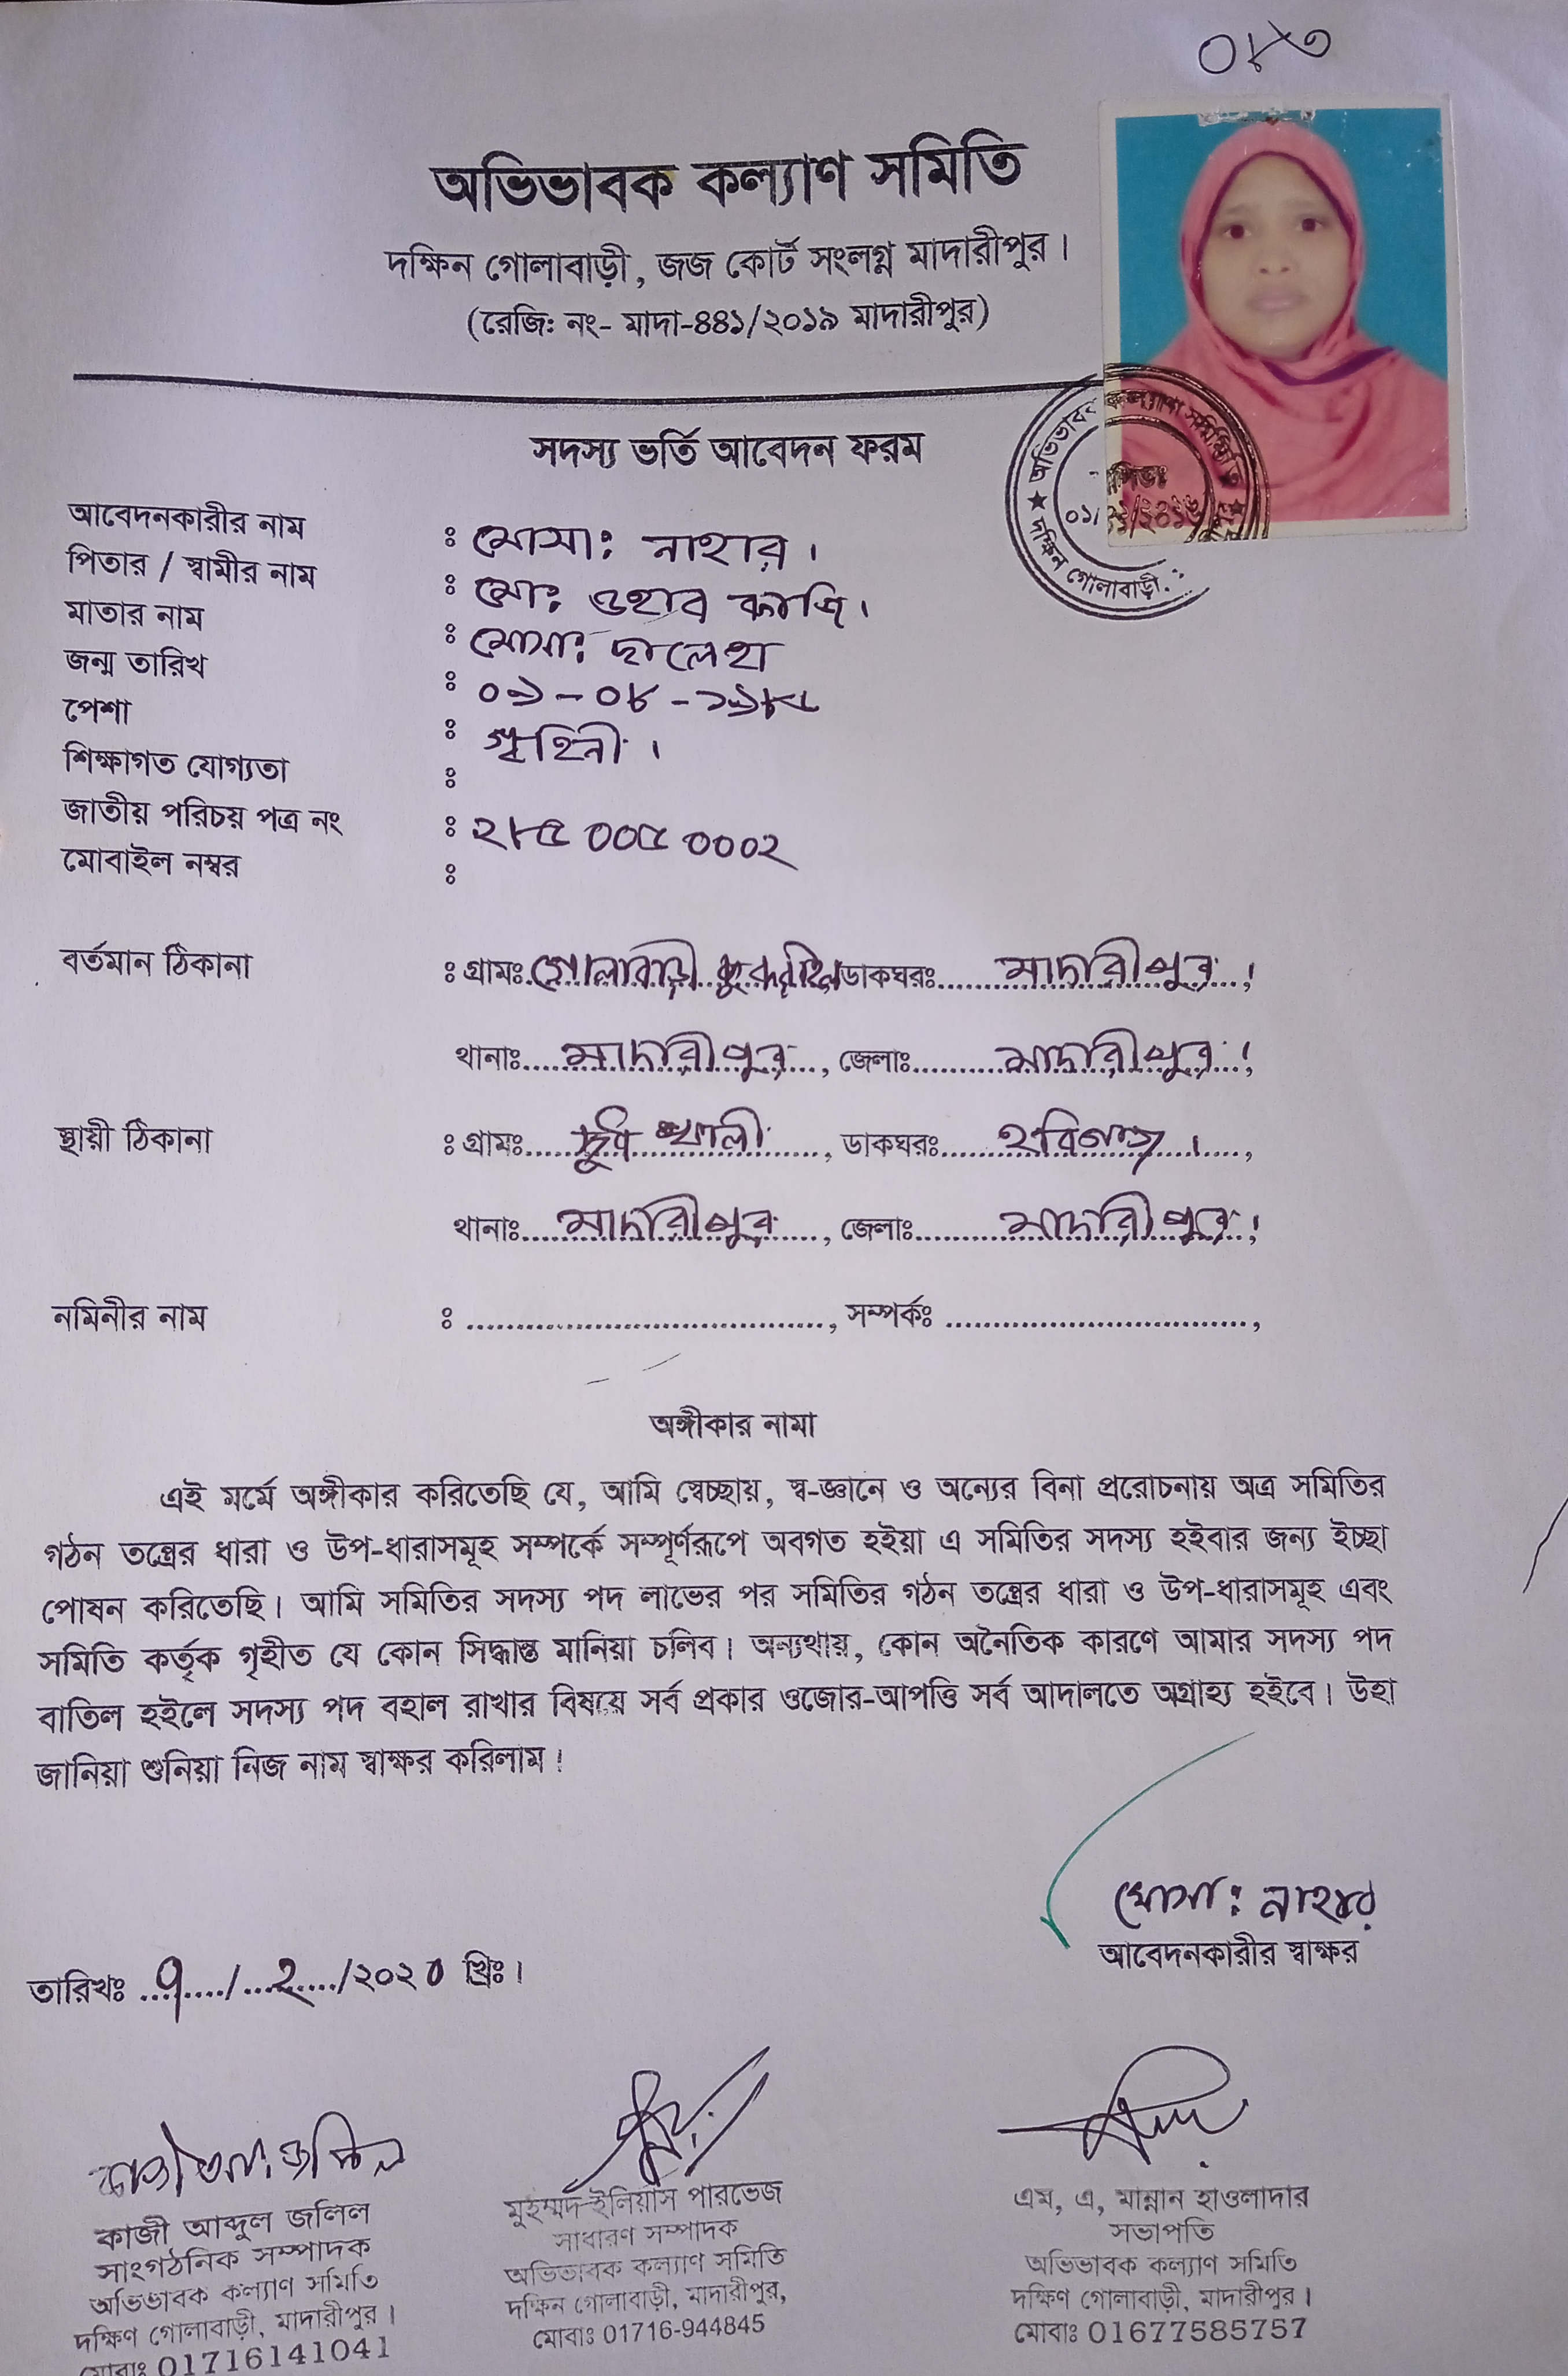 ০৮৩
অভিভাবক কল্যাণ সমিতি
দক্ষিন গোলাবাড়ী, জজ কোর্ট সংলগ্ন মাদারীপুর।
(রেজি: নং- মাদা-৪৪১/২০১৯ মাদারীপুর)
অভিভাবক কল্যাণ সমিতি
দক্ষিন গোলাবাড়ী
সদস্য ভর্তি আবেদন ফরম
আবেদনকারীর নাম : মোসা: নাহার।
পিতার / স্বামীর নাম : মো: ওহাব কাজি।
মাতার নাম : মোসা: ছালেহা
জন্ম তারিখ : ০৯-০৮-১৯৮৫
পেশা : গৃহিনী।
শিক্ষাগত যোগ্যতা :
জাতীয় পরিচয় পত্র নং : ২৮৫ ০০৫ ০০০২
মোবাইল নম্বর :
বর্তমান ঠিকানা : গ্রামঃ গোলাবাড়ী ডাকঘরঃ মাদারীপুর,
থানাঃ মাদারীপুর, জেলাঃ মাদারীপুর,
স্থায়ী ঠিকানা : গ্রামঃ খালী, ডাকঘরঃ হবিগঞ্জ।,
থানাঃ মাদারীপুর, জেলাঃ মাদারীপুর,
নমিনীর নাম : ......................................, সম্পর্কঃ ......................................,
অঙ্গীকার নামা
এই মর্মে অঙ্গীকার করিতেছি যে, আমি স্বেচ্ছায়, স্ব-জ্ঞানে ও অন্যের বিনা প্ররোচনায় অত্র সমিতির
গঠন তন্ত্রের ধারা ও উপ-ধারাসমূহ সম্পর্কে সম্পূর্ণরূপে অবগত হইয়া এ সমিতির সদস্য হইবার জন্য ইচ্ছা
পোষন করিতেছি। আমি সমিতির সদস্য পদ লাভের পর সমিতির গঠন তন্ত্রের ধারা ও উপ-ধারাসমূহ এবং
সমিতি কর্তৃক গৃহীত যে কোন সিদ্ধান্ত মানিয়া চলিব। অন্যথায়, কোন অনৈতিক কারণে আমার সদস্য পদ
বাতিল হইলে সদস্য পদ বহাল রাখার বিষয়ে সর্ব প্রকার ওজোর-আপত্তি সর্ব আদালতে অগ্রাহ্য হইবে। উহা
জানিয়া শুনিয়া নিজ নাম স্বাক্ষর করিলাম।
মোসা: নাহার
আবেদনকারীর স্বাক্ষর
তারিখঃ ৭/২/২০২০ খ্রিঃ।
কাজী আব্দুল জলিল
সাংগঠনিক সম্পাদক
অভিভাবক কল্যাণ সমিতি
দক্ষিণ গোলাবাড়ী, মাদারীপুর।
মোবাঃ 01716141041
মুহম্মদ ইলিয়াস পারভেজ
সাধারণ সম্পাদক
অভিভাবক কল্যাণ সমিতি
দক্ষিন গোলাবাড়ী, মাদারীপুর,
মোবাঃ 01716-944845
এম, এ, মান্নান হাওলাদার
সভাপতি
অভিভাবক কল্যাণ সমিতি
দক্ষিণ গোলাবাড়ী, মাদারীপুর।
মোবাঃ 01677585757